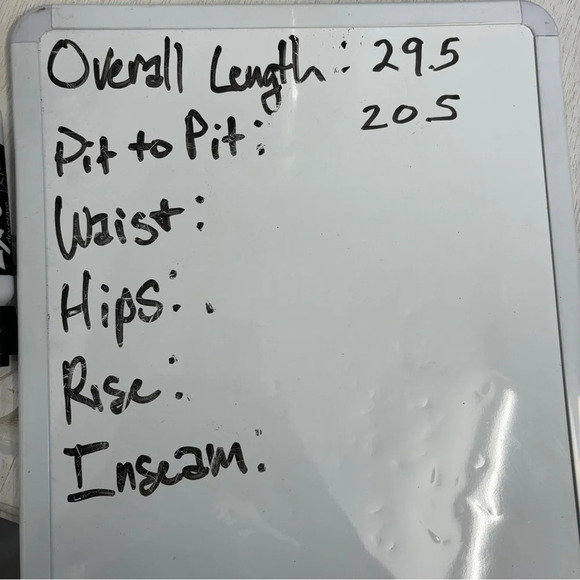 Overall Length: 29.5
Pit to Pit: 20.5
Waist:
Hips:
Rise:
Inseam: